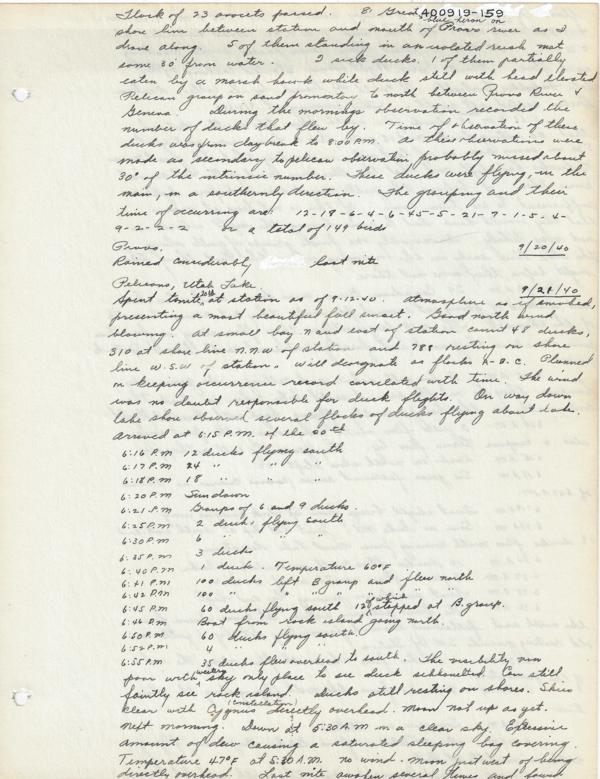 Flock of 23 avocets passed. 8 Great blue heron on
400919-159
shore line between station and mouth of Provo river as I
drove along. 5 of them standing in an isolated rush mat
some 30' from water. 2 sick ducks. 1 of them partially
eaten by a marsh hawk while duck still with head elevated
Pelican group on sand promontory to north between Provo River &
Geneva. During the mornings observation recorded the
number of ducks that flew by. Time of observation of these
ducks was from daybreak to 8:00 A.M. As this observations were
made as secondary to pelican observation, probably missed about
30% of the intrinsic number. These ducks were flying, in the
main, in a southernly direction. The grouping and their
time of occurring are: 12-18-6-4-6-45-5-21-7-1-5-4-
9-2-2-2 or a total of 149 birds
Provo. 9/20/40
Rained considerably last nite
Pelicans, Utah Lake. 9/21/40
Spent tonite, 20th at station as of 9-12-40. Atmosphere as if smoked,
presenting a most beautiful fall sunset. Good north wind
blowing. At small bay N and east of station count 48 ducks,
310 at shore line N.N.W of station and 788 resting on shore
line W.S.W of station. Will designate as flocks A-B.C. Planned
on keeping occurrence record correlated with time. The wind
was no doubt responsible for duck flights. On way down
lake shore observed several flocks of ducks flying about lake.
Arrived at 6:15 P.M. of the 20th
6:16 P.M 12 ducks flying south
6:17 P.M 24 " " "
6:18 P.M 18 " " "
6:20 P.M Sundown
6:21 P.M Groups of 6 and 9 ducks.
6:25 P.M 2 ducks flying south
6:30 P.M 6 " " "
6:35 P.M 3 ducks
6:40 P.M 1 duck. Temperature 60°F
6:41 P.M 100 ducks left B group and flew north
6:42 P.M 100 " " " " " " "
6:45 P.M 60 ducks flying south 12 of which stopped at B. group.
6:46 P.M Boat from rock island going north.
6:50 P.M 60 ducks flying south.
6:52 P.M 4 " " "
6:55 P.M 35 ducks flew overhead to south. The visibility now
poor with western sky only place to see duck silhouetted. Can still
faintly see rock island. Ducks still resting on shores. Skies
clear with Cygnus (constellation) directly overhead. Moon not up as yet.
Next morning. Dawn at 5:30 A.M in a clear sky. Excessive
amount of dew causing a saturated sleeping bag covering.
Temperature 47°F at 5:30 A.M. no wind. Moon just west of being
directly overhead. Last nite awoken several times and found